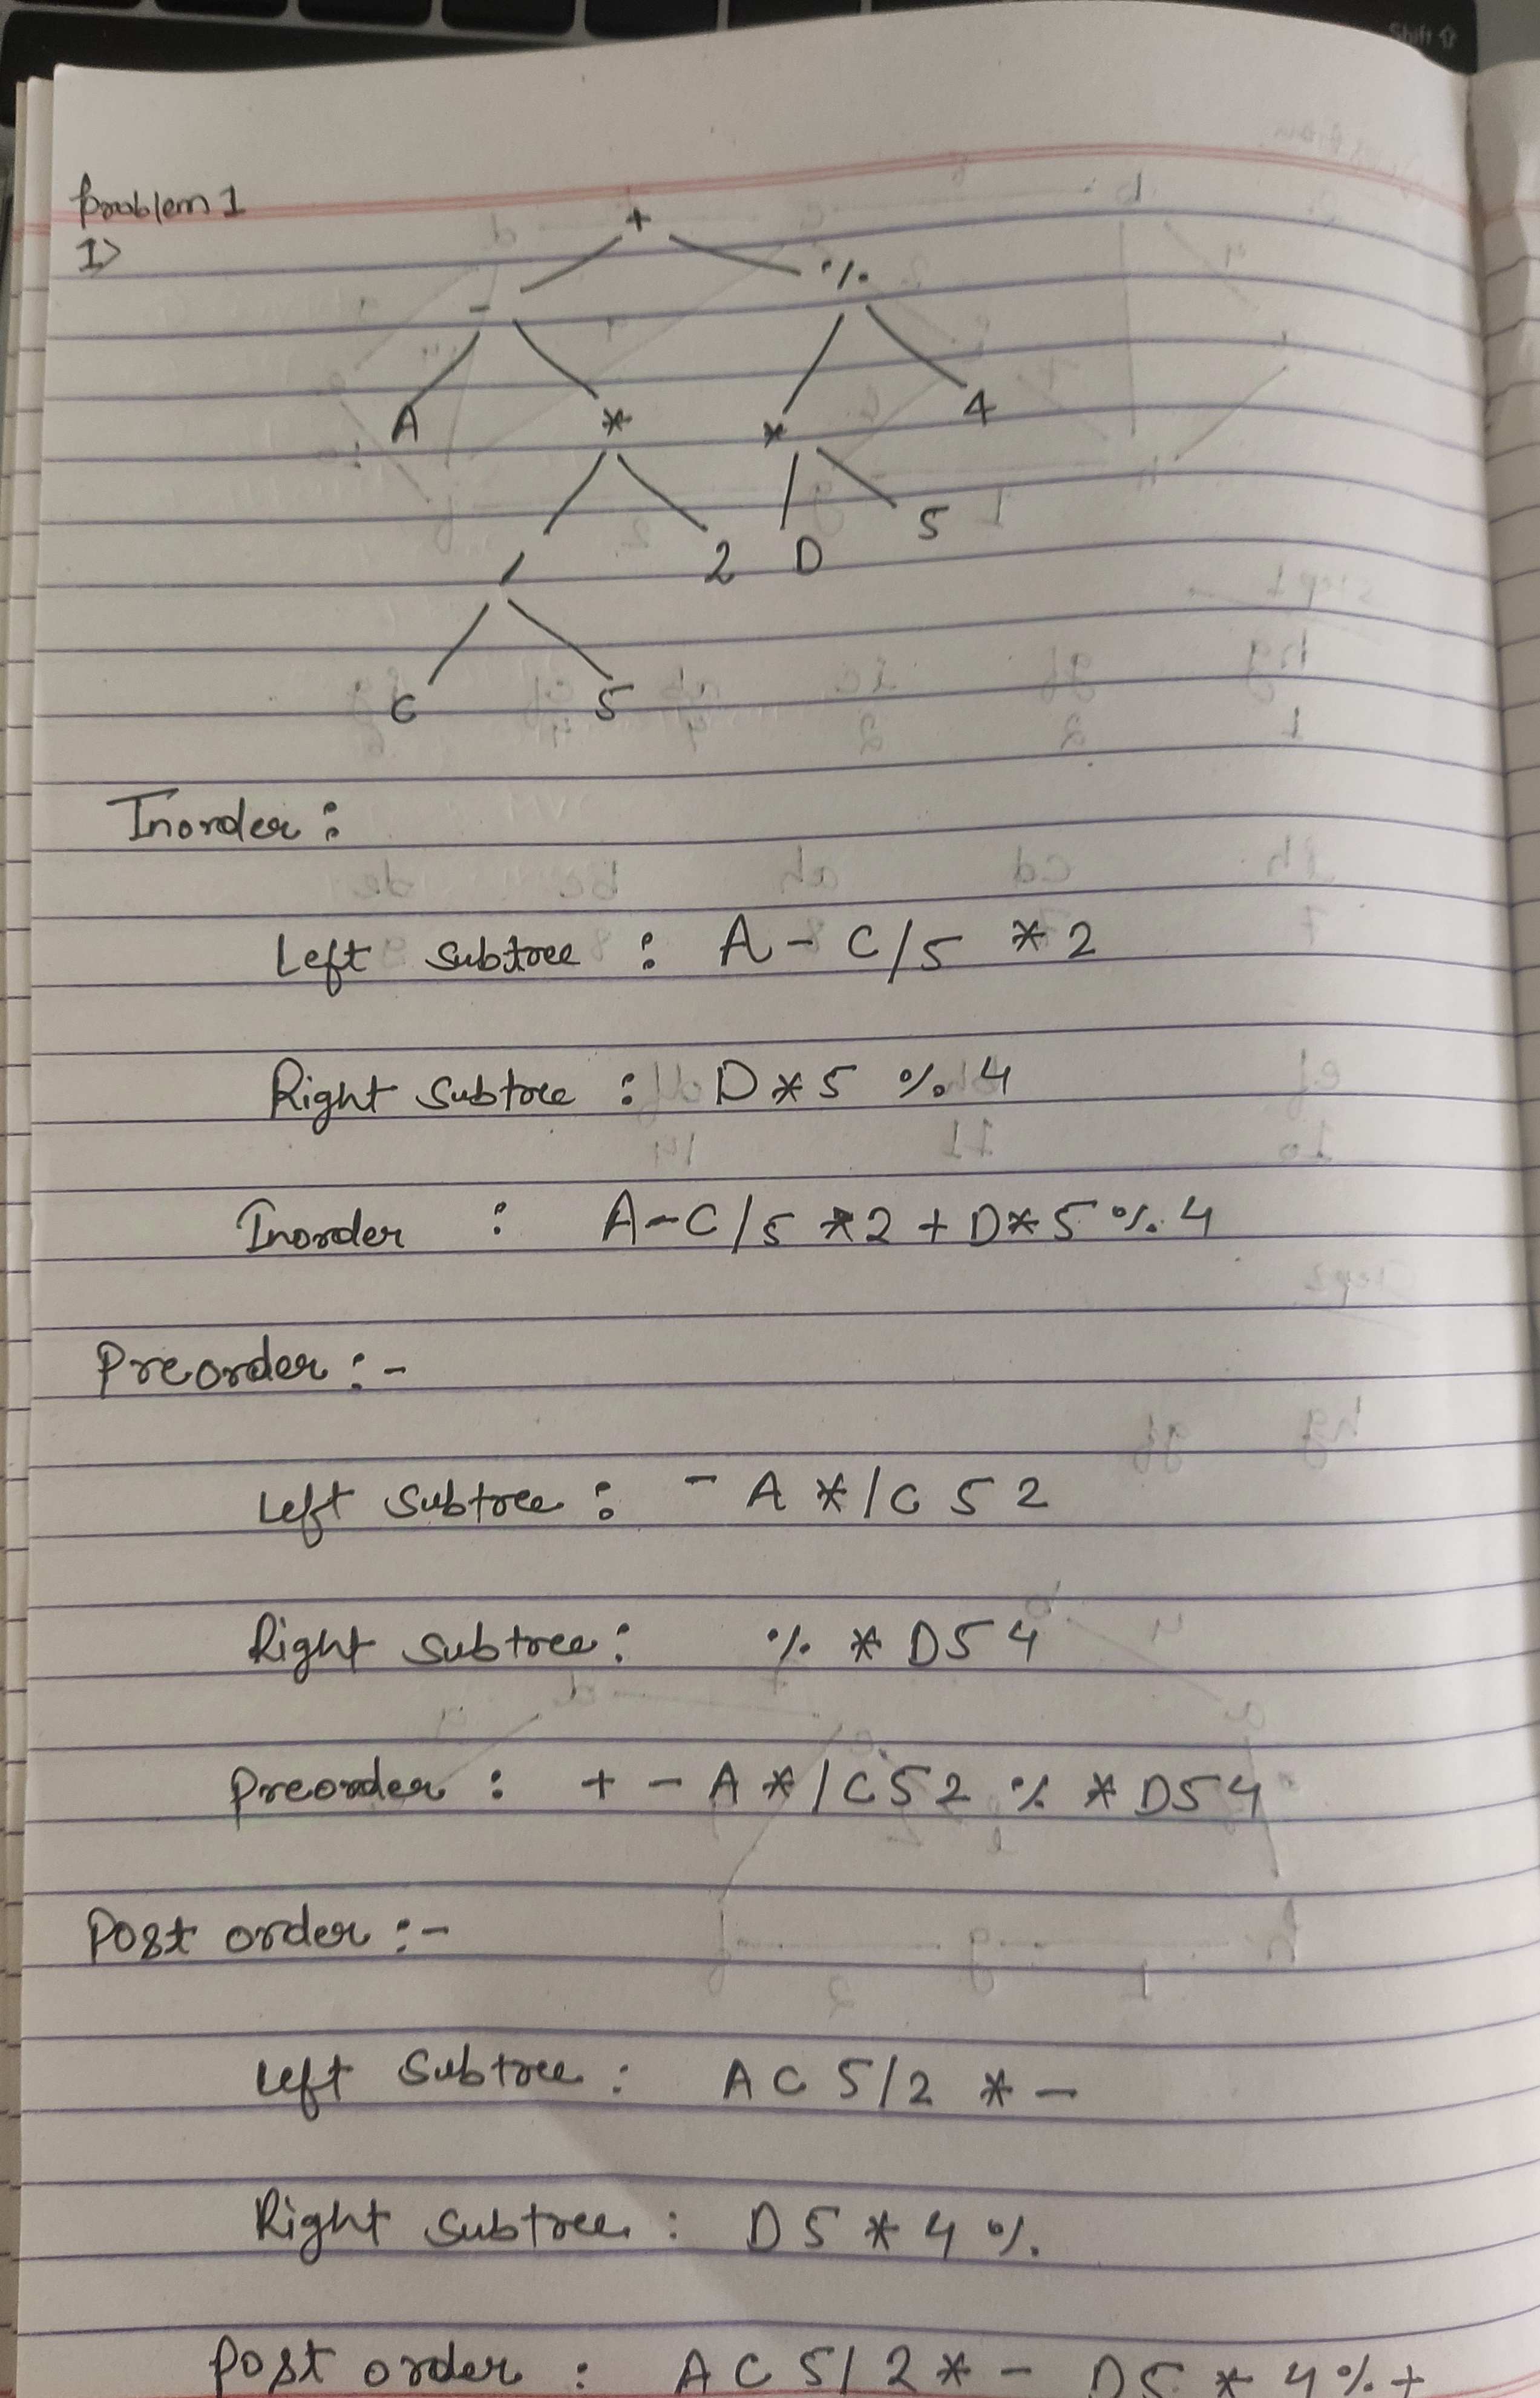 Shift ⇧
Problem 1
1>
+
- %
A * * 4
/ 2 D 5
C 5
Inorder :
Left subtree : A - C/5 * 2
Right subtree : D * 5 % 4
Inorder : A-C/5 *2 + D*5 % 4
Preorder :-
Left subtree : - A * / C 5 2
Right subtree : % * D54
Preorder : + - A * / C52 % * D54
Post order :-
Left subtree : A C 5/2 * -
Right subtree : D 5 * 4 %
Post order : A C 5/2 * - D5 * 4 % +